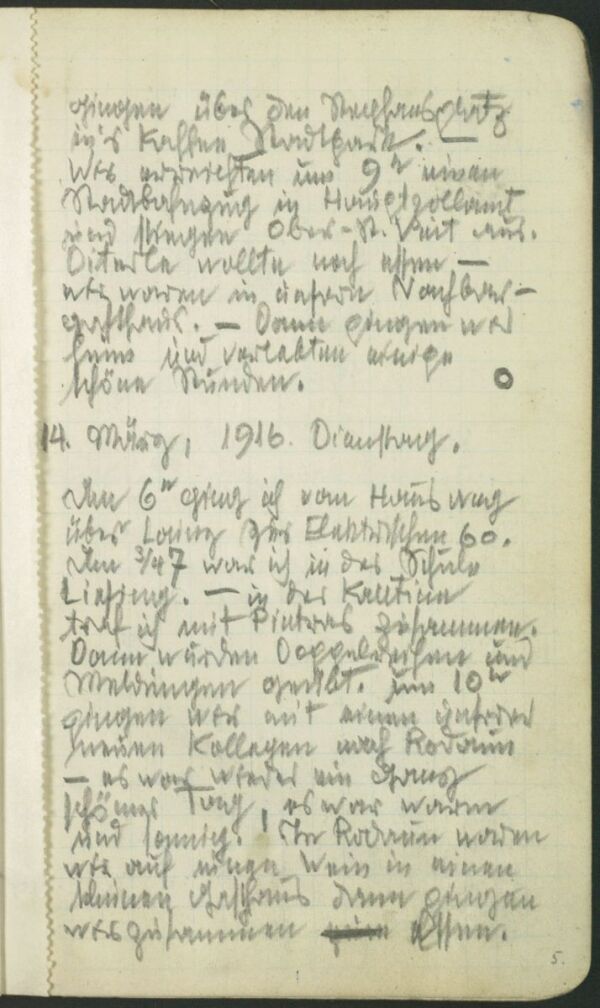 gingen über den Stephansplatz
in's Kaffee Stadtpark. —
Wir erreichten um 9h einen
Stadtbahnzug in Hauptzollamt
und stiegen Ober-St. Veit aus.
Diterle wollte noch essen —
wir waren in unsern Nachbar-
gasthaus. — Dann gingen wir
heim und verlebten einige
schöne Stunden.
14. März, 1916. Dienstag.
Um 6h ging ich vom Haus weg
über Lainz zur Elektrischen 60.
Um 3/4 7 war ich in der Schule
Liesing. — in der Kantine
traf ich mit Pinteras zusammen.
Dann wurden Doppelreihen und
Meldungen geübt. Um 10h
gingen wir mit einen unserer
neuen Kollegen nach Rodaun
— es war wieder ein ganz
schöner Tag, es war warm
und sonnig. In Rodaun waren
wir auf einen Wein in einen
kleinen Gasthaus dann gingen
wir zusammen essen.
5.